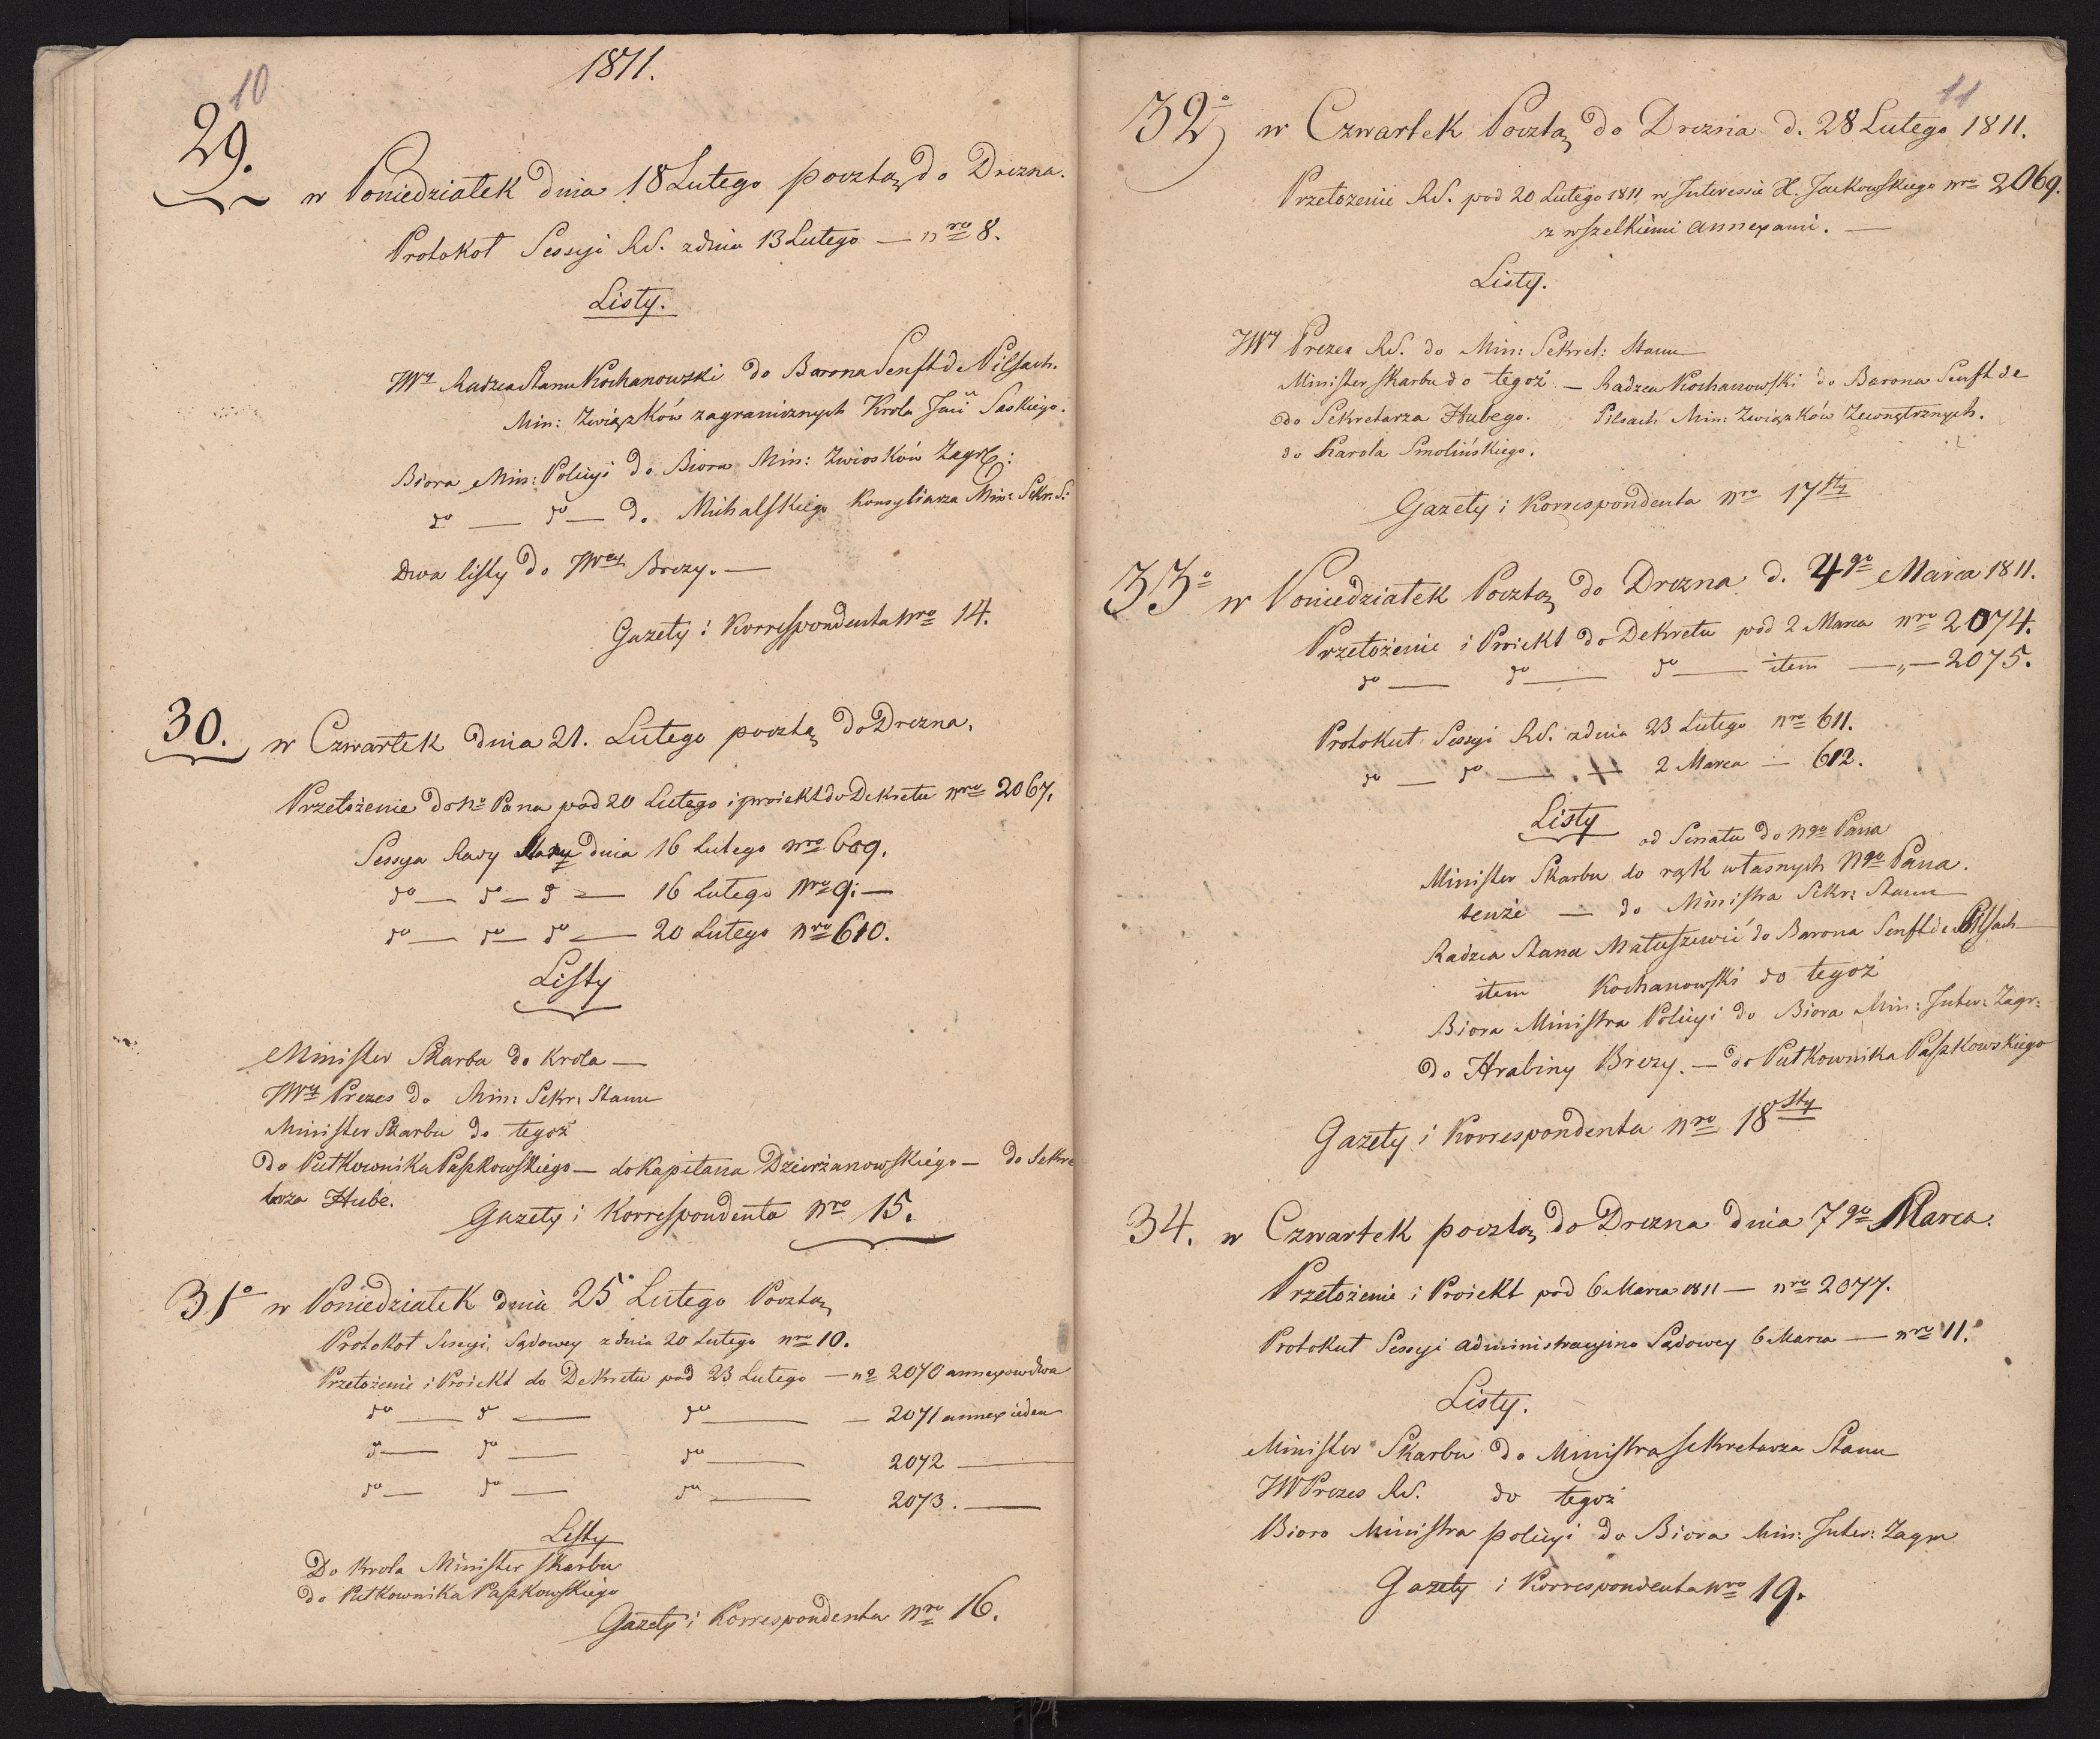 10
1811.
29.
w Poniedziałek dnia 18 Lutego pocztą do Drezna.
Protokoł Sessyi RS. z dnia 13 Lutego — nro 8.
Listy.
JWy Radzca Stanu Kochanowski do Barona Senft de Pilsach.
Min: Związków zagranicznych Krola Saskiego.
Biora Min: Policyi do Biora Min: Zwiosków Zagr:
do — do — do Michalskiego Konsyliarza Min: Sekr. S:
Dwa listy do JWey Brezy. —
Gazety i Korrespondenta nro 14.
30. w Czwartek dnia 21. Lutego pocztą do Drezna.
Przełożenie do No Pana pod 20 Lutego i proiekt do Dekretu nro 2067.
Sessya Rady Stanu dnia 16 Lutego nro 609.
do — do — do — 16 Lutego Nro 9. —
do — do — do — 20 Lutego nro 610.
Listy
Minister Skarbu do Krola —
JWy Prezes do Min: Sekr: Stanu
Minister Skarbu do tegoż
do Pułkownika Paszkowskiego — do Kapitana Dzierżanowskiego — do Sekre
tarza Hube.
Gazety i Korrespondenta Nro 15.
31o w Poniedziałek dnia 25 Lutego Pocztą
Protokoł Sessyi Sądowey z dnia 20 Lutego nro 10.
Przełożenie i Proiekt do Dekretu pod 23 Lutego — no 2070 annexow dwa
do — do — do — — 2071 annex ieden
do — do — do — 2072 —
do — do — do — 2073. —
Listy
Do Krola Minister Skarbu
do Pułkownika Paszkowskiego
Gazety i Korrespondenta nro 16.
11
32o w Czwartek Pocztą do Drezna d. 28 Lutego 1811.
Przełożenie RS. pod 20 Lutego 1811 w Interessie X. Jackowskiego nro 2069.
z wszelkiemi annexami. —
Listy.
JWy Prezes RS. do Min: Sekret: Stanu
Minister Skarbu do tegoż — Radzca Kochanowski do Barona Senft de
do Sekretarza Hubego. Pilsach Min: Związków Zewnętrznych.
do Karola Smolińskiego.
Gazety i Korrespondenta Nro 17sty
33o w Poniedziałek Pocztą do Drezna d. 4go Marca 1811.
Przełożenie i Proiekt do Dekretu pod 2 Marca nro 2074.
do — do — do — item — „ — 2075.
Protokuł Sessyi RS. z dnia 23 Lutego nro 611.
do — do — 2 Marca — 612.
Listy
od Senatu do Ngo Pana
Minister Skarbu do rąk własnych Ngo Pana.
tenże — do Ministra Sekr: Stanu
Radzca Stanu Matuszewić do Barona Senft de Pilsach
item Kochanowski do tegoż
Biora Ministra Policyi do Biora Min: Inter: Zagr:
do Hrabiny Brezy. — do Pułkownika Paszkowskiego
Gazety i Korrespondenta nro 18sty
34. w Czwartek pocztą do Drezna dnia 7go Marca.
Przełożenie i Proiekt pod 6 Marca 1811 — nro 2077.
Protokuł Sessyi administracyino Sądowey 6 Marca — nro 11.
Listy.
Minister Skarbu do Ministra Sekretarza Stanu
JW Prezes RS. do tegoż
Bioro Ministra policyi do Biora Min: Inter: Zagr
Gazety i Korrespondenta nro 19.